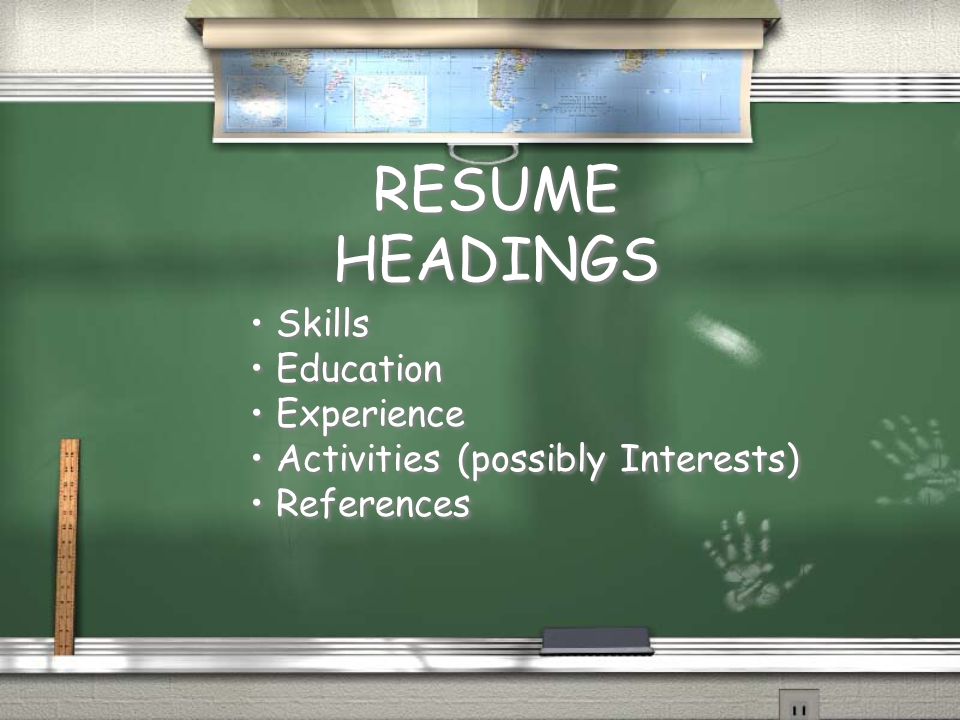 RESUME
HEADINGS
• Skills
• Education
• Experience
• Activities (possibly Interests)
• References